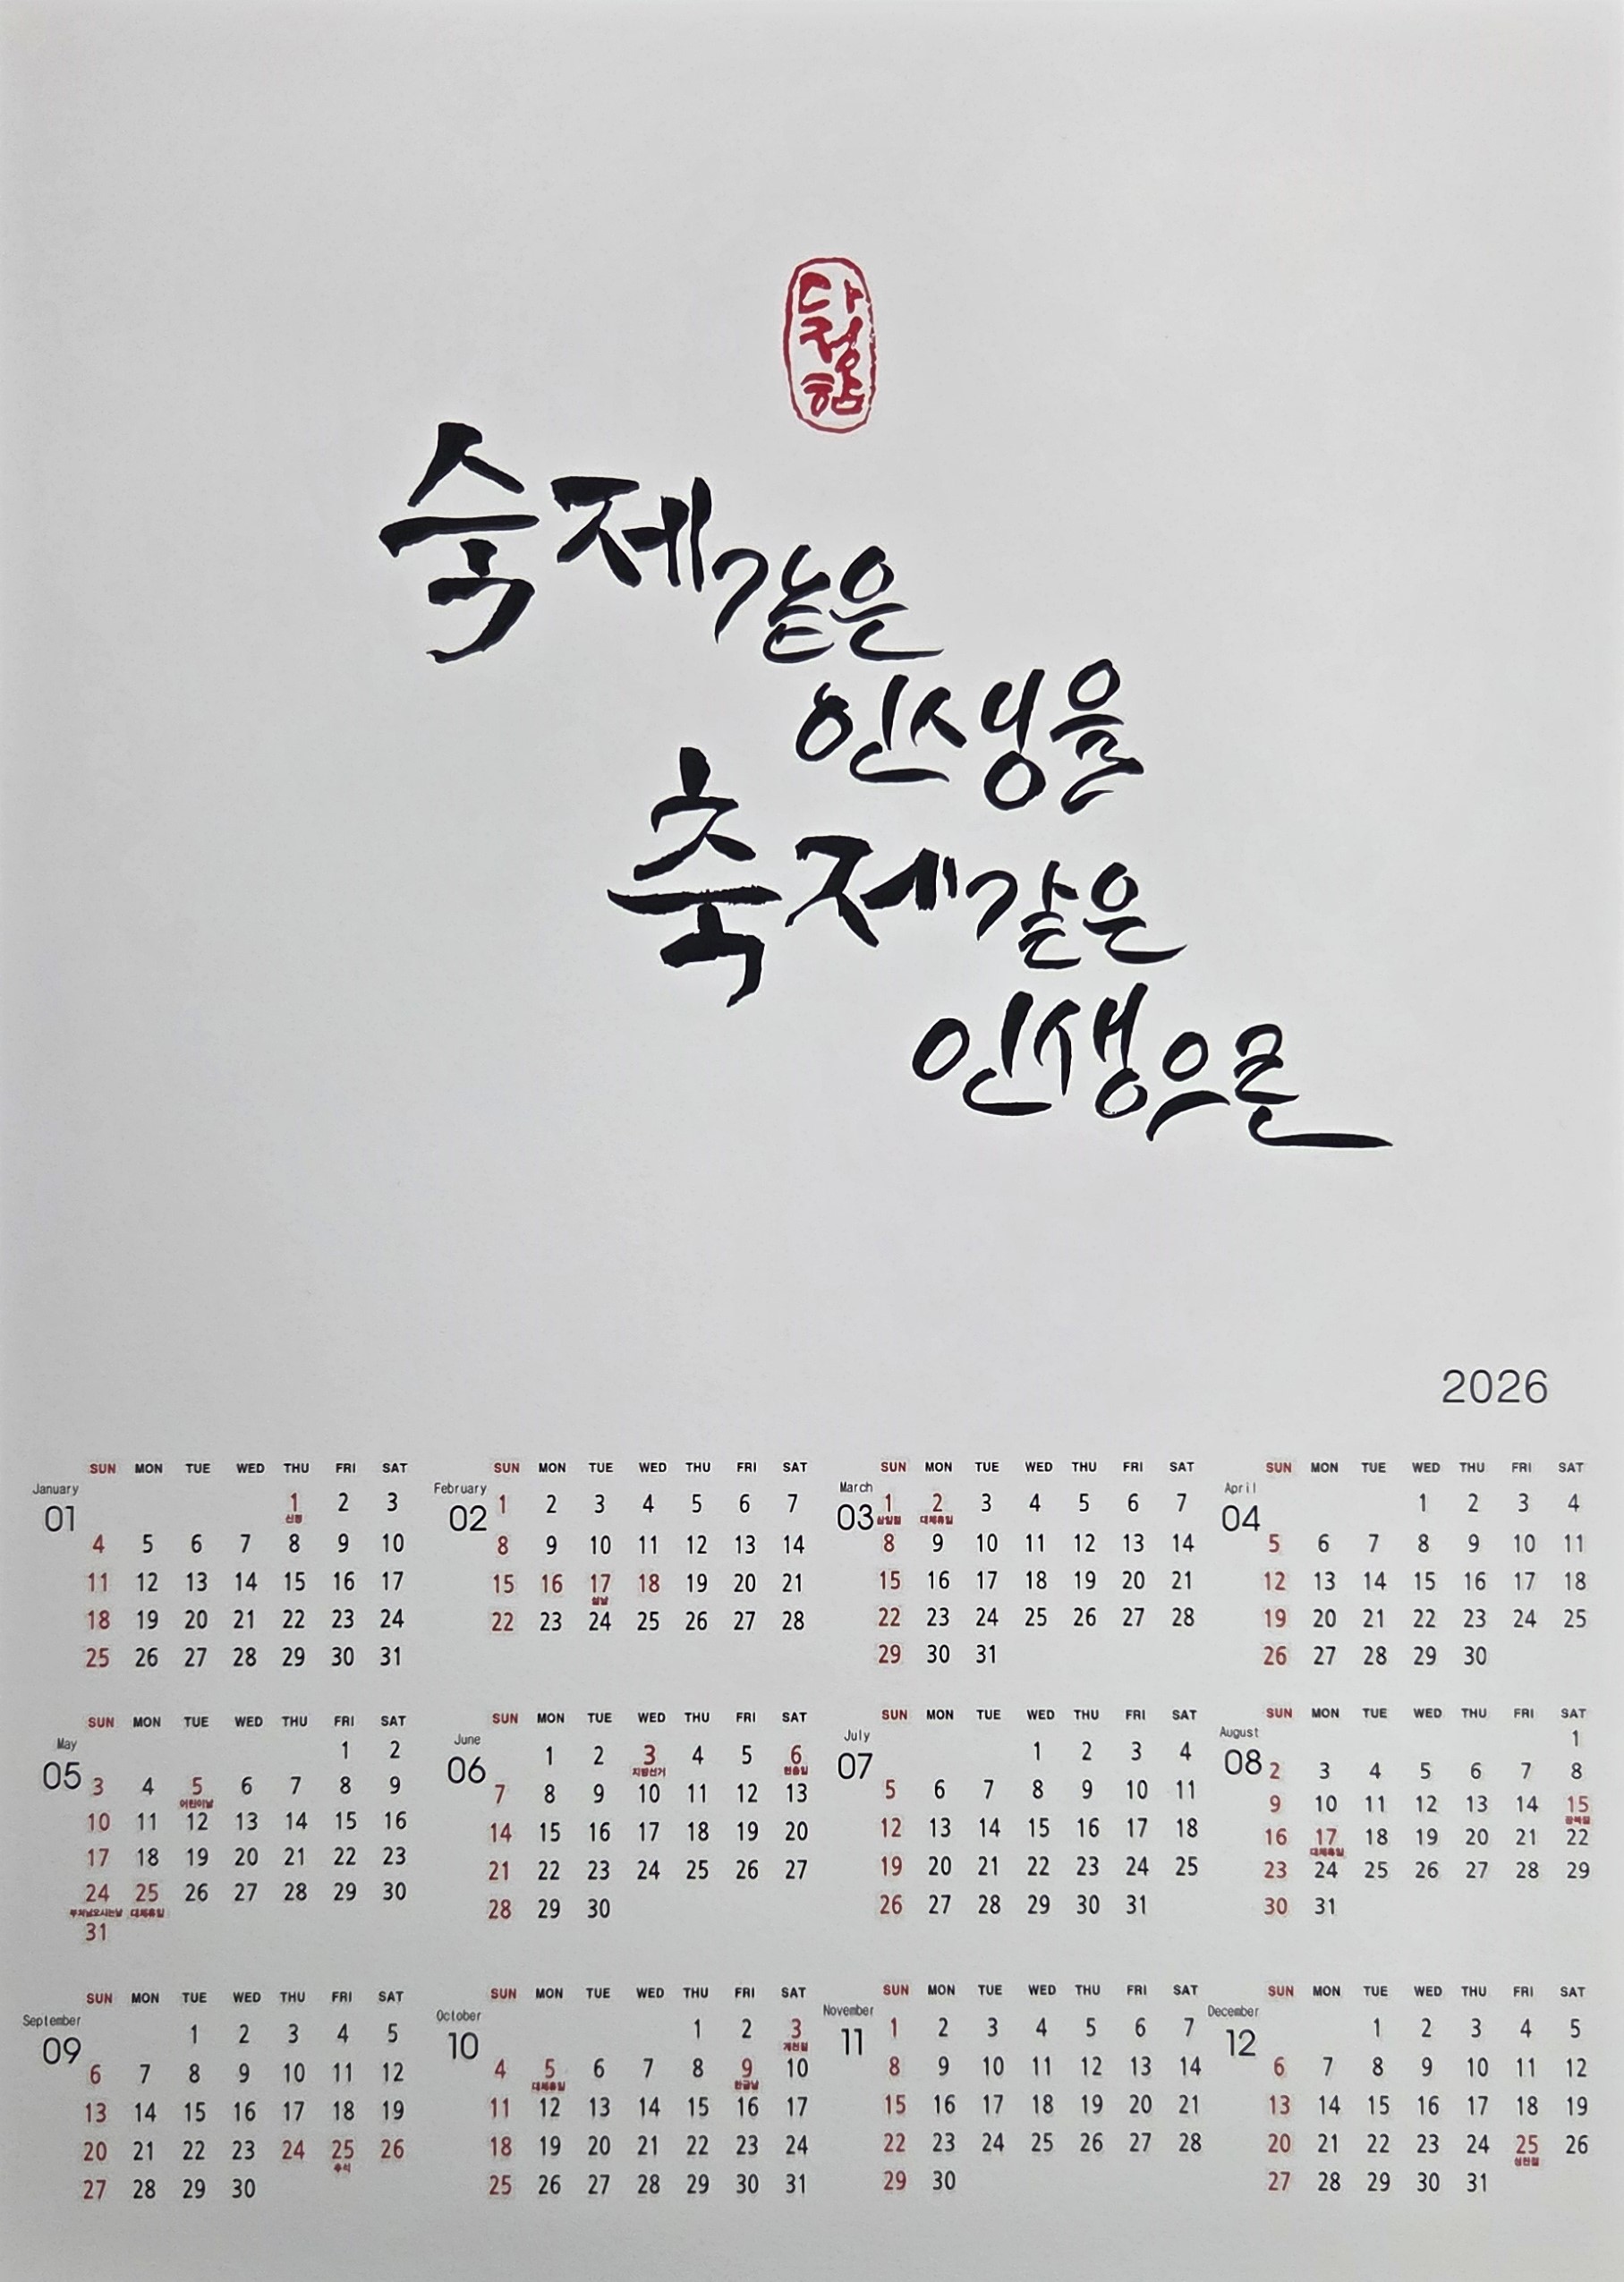 다정함
숙제같은
인생을
축제같은
인생으로
2026
January
01
SUN MON TUE WED THU FRI SAT
1 2 3
신정
4 5 6 7 8 9 10
11 12 13 14 15 16 17
18 19 20 21 22 23 24
25 26 27 28 29 30 31
February
02
SUN MON TUE WED THU FRI SAT
1 2 3 4 5 6 7
8 9 10 11 12 13 14
15 16 17 18 19 20 21
설날
22 23 24 25 26 27 28
March
03
SUN MON TUE WED THU FRI SAT
1 2 3 4 5 6 7
삼일절 대체휴일
8 9 10 11 12 13 14
15 16 17 18 19 20 21
22 23 24 25 26 27 28
29 30 31
April
04
SUN MON TUE WED THU FRI SAT
1 2 3 4
5 6 7 8 9 10 11
12 13 14 15 16 17 18
19 20 21 22 23 24 25
26 27 28 29 30
May
05
SUN MON TUE WED THU FRI SAT
1 2
3 4 5 6 7 8 9
어린이날
10 11 12 13 14 15 16
17 18 19 20 21 22 23
24 25 26 27 28 29 30
부처님오시는날 대체휴일
31
June
06
SUN MON TUE WED THU FRI SAT
1 2 3 4 5 6
지방선거 현충일
7 8 9 10 11 12 13
14 15 16 17 18 19 20
21 22 23 24 25 26 27
28 29 30
July
07
SUN MON TUE WED THU FRI SAT
1 2 3 4
5 6 7 8 9 10 11
12 13 14 15 16 17 18
19 20 21 22 23 24 25
26 27 28 29 30 31
August
08
SUN MON TUE WED THU FRI SAT
1
2 3 4 5 6 7 8
9 10 11 12 13 14 15
광복절
16 17 18 19 20 21 22
대체휴일
23 24 25 26 27 28 29
30 31
September
09
SUN MON TUE WED THU FRI SAT
1 2 3 4 5
6 7 8 9 10 11 12
13 14 15 16 17 18 19
20 21 22 23 24 25 26
추석
27 28 29 30
October
10
SUN MON TUE WED THU FRI SAT
1 2 3
개천절
4 5 6 7 8 9 10
대체휴일 한글날
11 12 13 14 15 16 17
18 19 20 21 22 23 24
25 26 27 28 29 30 31
November
11
SUN MON TUE WED THU FRI SAT
1 2 3 4 5 6 7
8 9 10 11 12 13 14
15 16 17 18 19 20 21
22 23 24 25 26 27 28
29 30
December
12
SUN MON TUE WED THU FRI SAT
1 2 3 4 5
6 7 8 9 10 11 12
13 14 15 16 17 18 19
20 21 22 23 24 25 26
성탄절
27 28 29 30 31